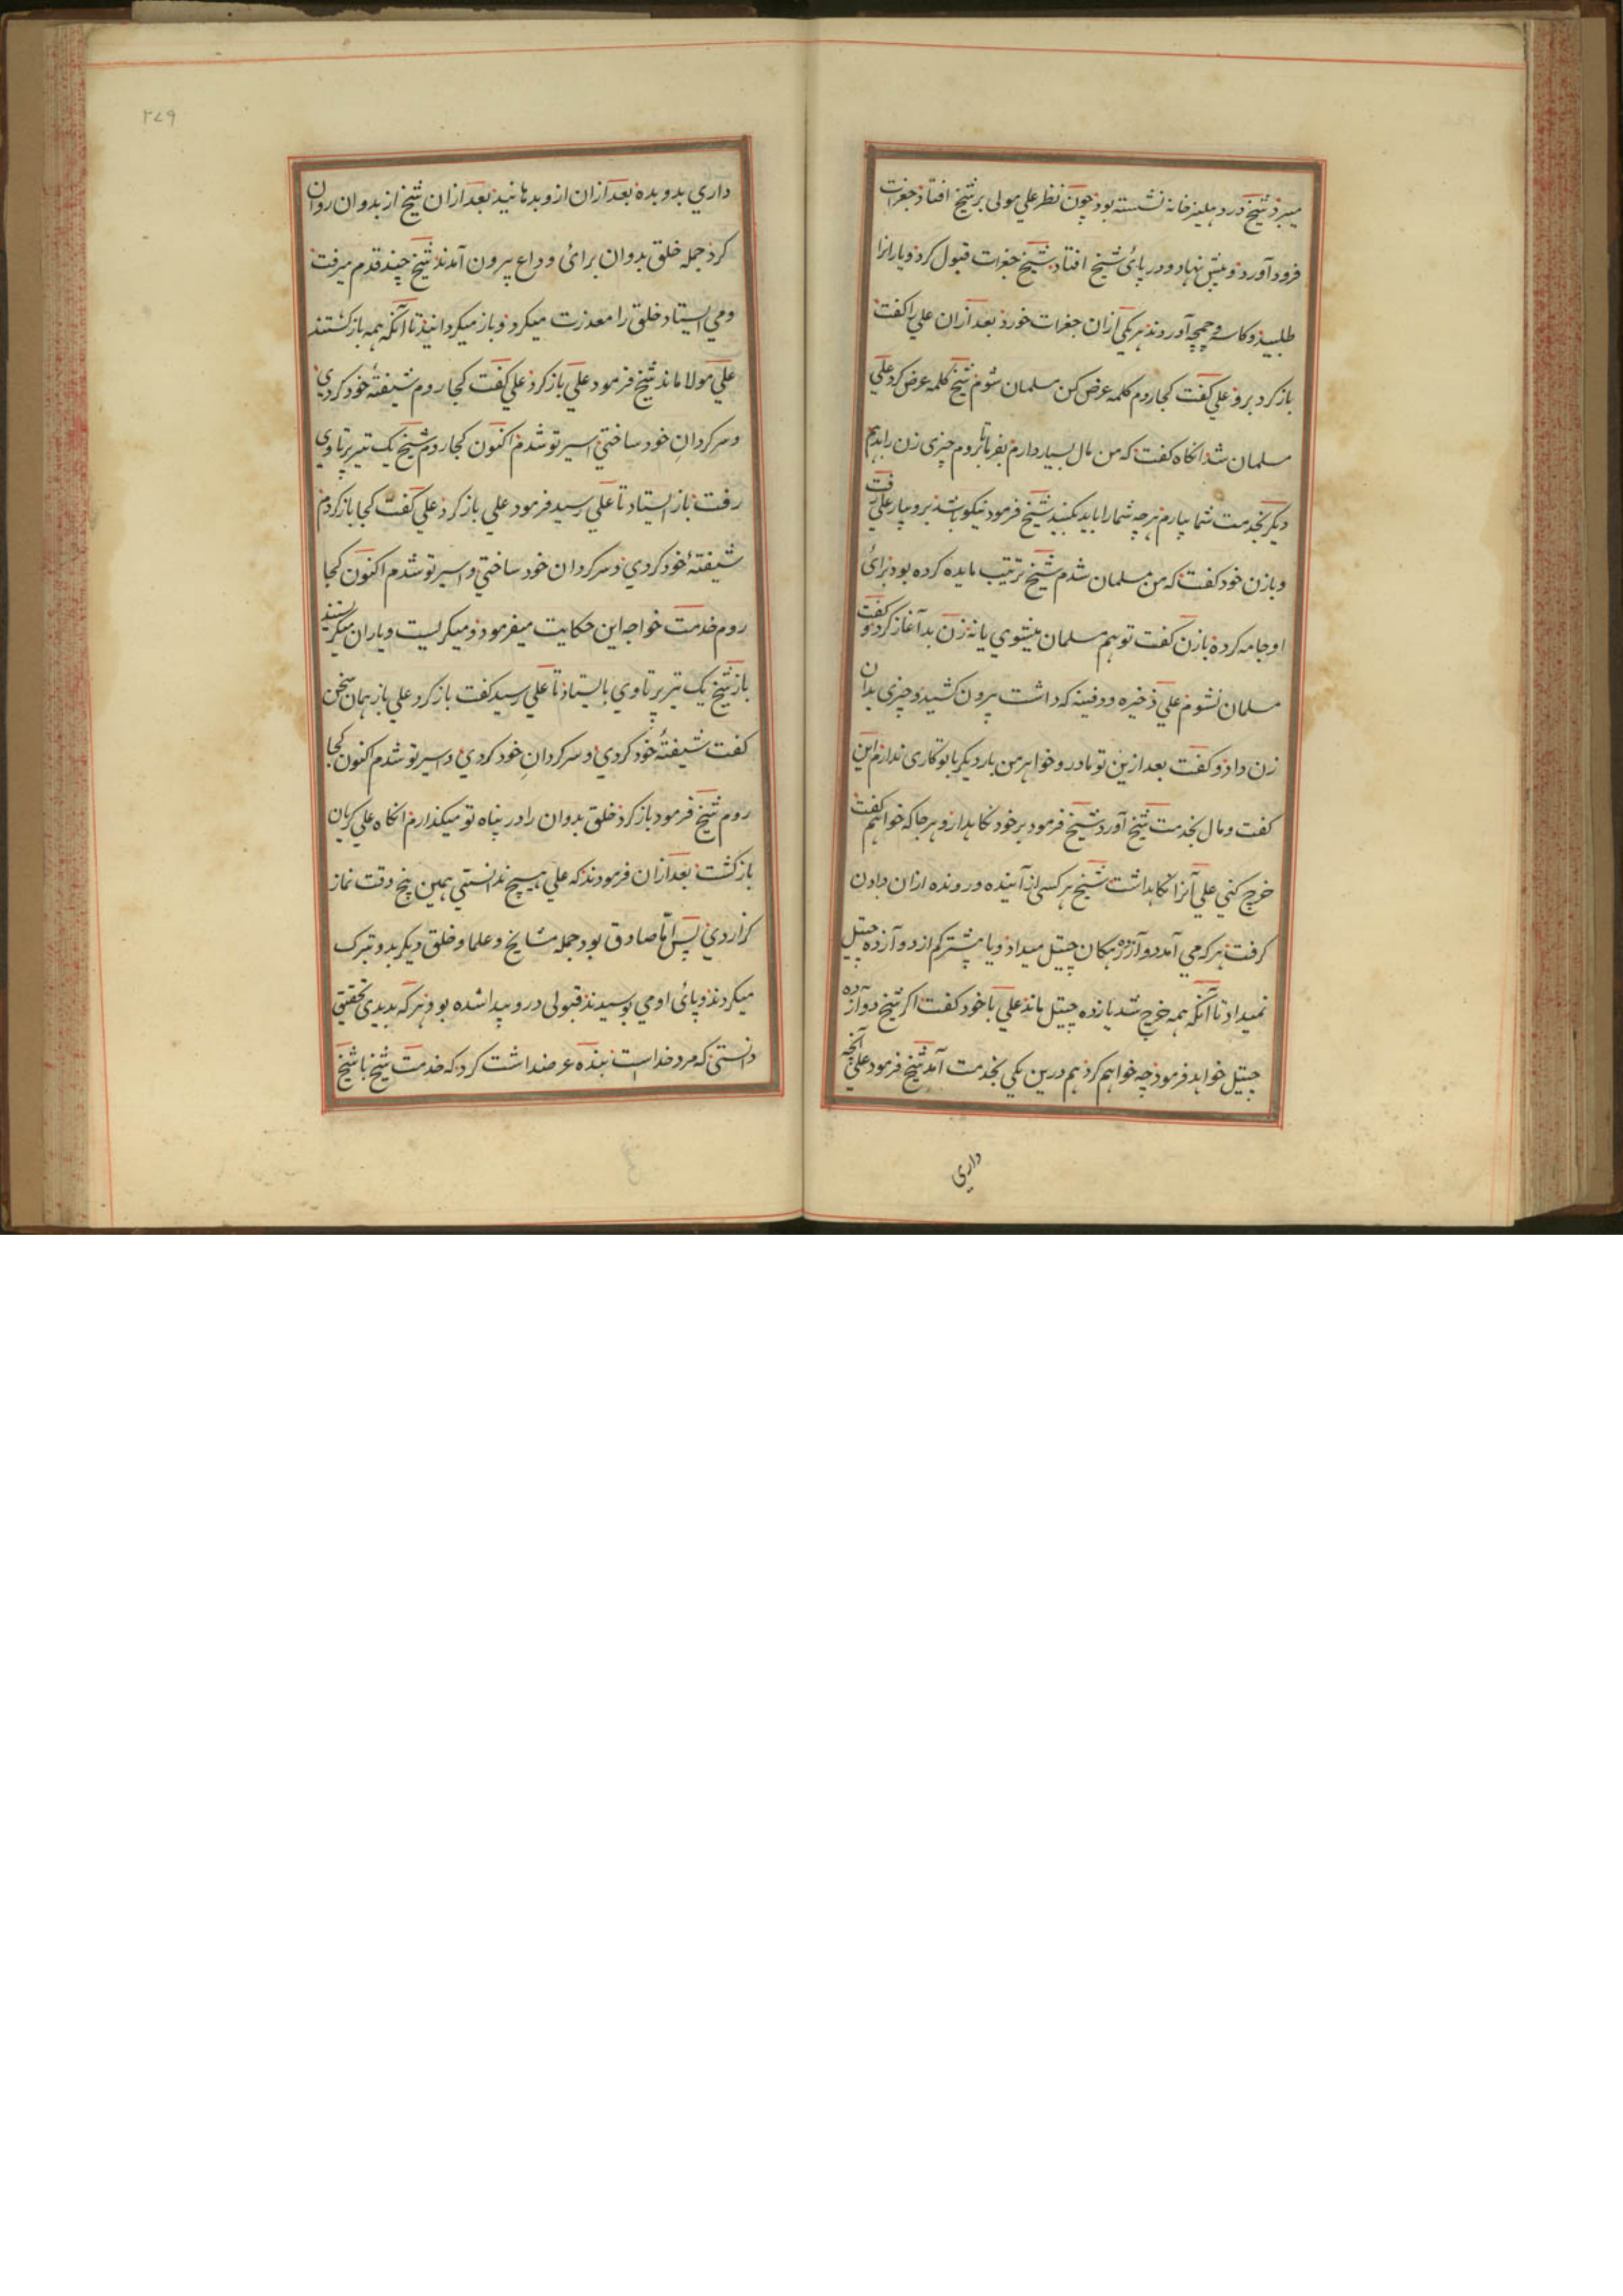 میبرد شیخ در دهلیز خانه نشسته بود چون نظر علی مولی بر شیخ افتاد جغرات
فرود آورد و پیش نهاد و در پائ شیخ افتاد شیخ جغرات قبول کرد و یارانرا
طلبید و کاسه و چمچه آوردند هر یکی ازان جغرات خورد بعد ازان علی را کفت
باز کرد برو علی کفت کجا روم کلمه عرض کن مسلمان شوم شیخ کلمه عرض کرد علی
مسلمان شد انکاه کفت که من مال بسیار دارم بروم چیزی زن را بدهم
دیکر بخدمت شما بیارم هر چه شما را باید بکنید شیخ فرمود نیکو باشد برو بیار علی رفت
و با زن خود کفت که من مسلمان شدم شیخ ترتیب مایده کرده بود برائ
او جامه کرده با زن کفت تو هم مسلمان میشوی یا نه زن بد آغاز کرد و کفت
مسلمان نشوم علی ذخیره و دفینه که داشت بیرون کشید و چیزی بدان
زن داد و کفت بعد ازین تو مادر و خواهر من بار دیکر با تو کاری ندارم این
کفت و مال بخدمت شیخ آورد شیخ فرمود بر خود نکاهدار و هر جا که خواهم کفت
خرج کنی علی آنرا نکاهداشت شیخ هر کسی از آینده و رونده ازان دادن
کرفت هر که می آمد دوآزده کان جیتل میداد و یا بیشتر کم از دوآزده جیتل
نمیداد تا آنکه همه خرج شد یازده جیتل ماند علی با خود کفت اکر شیخ دوآزده
جیتل خواهد فرمود چه خواهم کرد هم درین یکی بخدمت آمد شیخ فرمود علی آنچه
داری
۲۷۹
داری بدو بده بعد ازان ازو بدهانید بعد ازان شیخ از بدوان روان
کرد جمله خلق بدوان برائ وداع بیرون آمدند شیخ چند قدم میرفت
و می ایستاد خلق را معذرت میکرد و باز میکردانید تا آنکه همه باز کشتند
علی مولا ماند شیخ فرمود علی باز کرد علی کفت کجا روم شیفتهٔ خود کردی
و سر کردان خود ساختی اسیر تو شدم اکنون کجا روم شیخ یک تیر پرتاوی
رفت باز ایستاد تا علی رسید فرمود علی باز کرد علی کفت کجا باز کردم
شیفتهٔ خود کردی و سر کردان خود ساختی و اسیر تو شدم اکنون کجا
روم خدمت خواجه این حکایت میفرمود و میکریست و یاران میکریستند
باز شیخ یک تیر پرتاوی بایستاد تا علی رسید کفت باز کرد علی باز همان سخن
کفت شیفتهٔ خود کردی و سر کردان خود کردی و اسیر تو شدم اکنون کجا
روم شیخ فرمود باز کرد خلق بدوان را در پناه تو میکذارم انکاه علی کریان
باز کشت بعد ازان فرمودند که علی هیچ ندانستی همین پنج وقت نماز
کزاردی پس اما صادق بود جمله مشایخ و علما و خلق دیکر بدو تبرک
میکردند و پائ او می بوسیدند قبولی درو پیدا شده بود و هر که بدیدی تحقیق
دانستی که مرد خداست بنده عرضداشت کرد که خدمت شیخ با شیخ